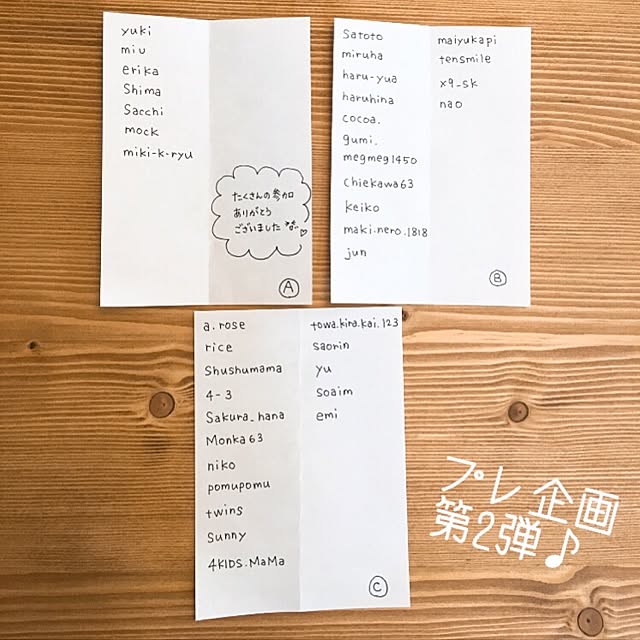 yuki
miu
erika
Shima
Sacchi
mock
miki-k-ryu
たくさんの参加
ありがとう
ございました
A
Satoto
miruha
haru-yua
haruhina
cocoa.
gumi.
megmeg1450
chiekawa63
keiko
maki.nero.1818
jun
maiyukapi
tensmile
x9_sk
nao
B
a.rose
rice
Shushumama
4-3
Sakura_hana
Monka63
niko
pomupomu
twins
Sunny
4KIDS.MaMa
towa.kira.kai.123
saorin
yu
soaim
emi
C
プレ企画
第2弾♪